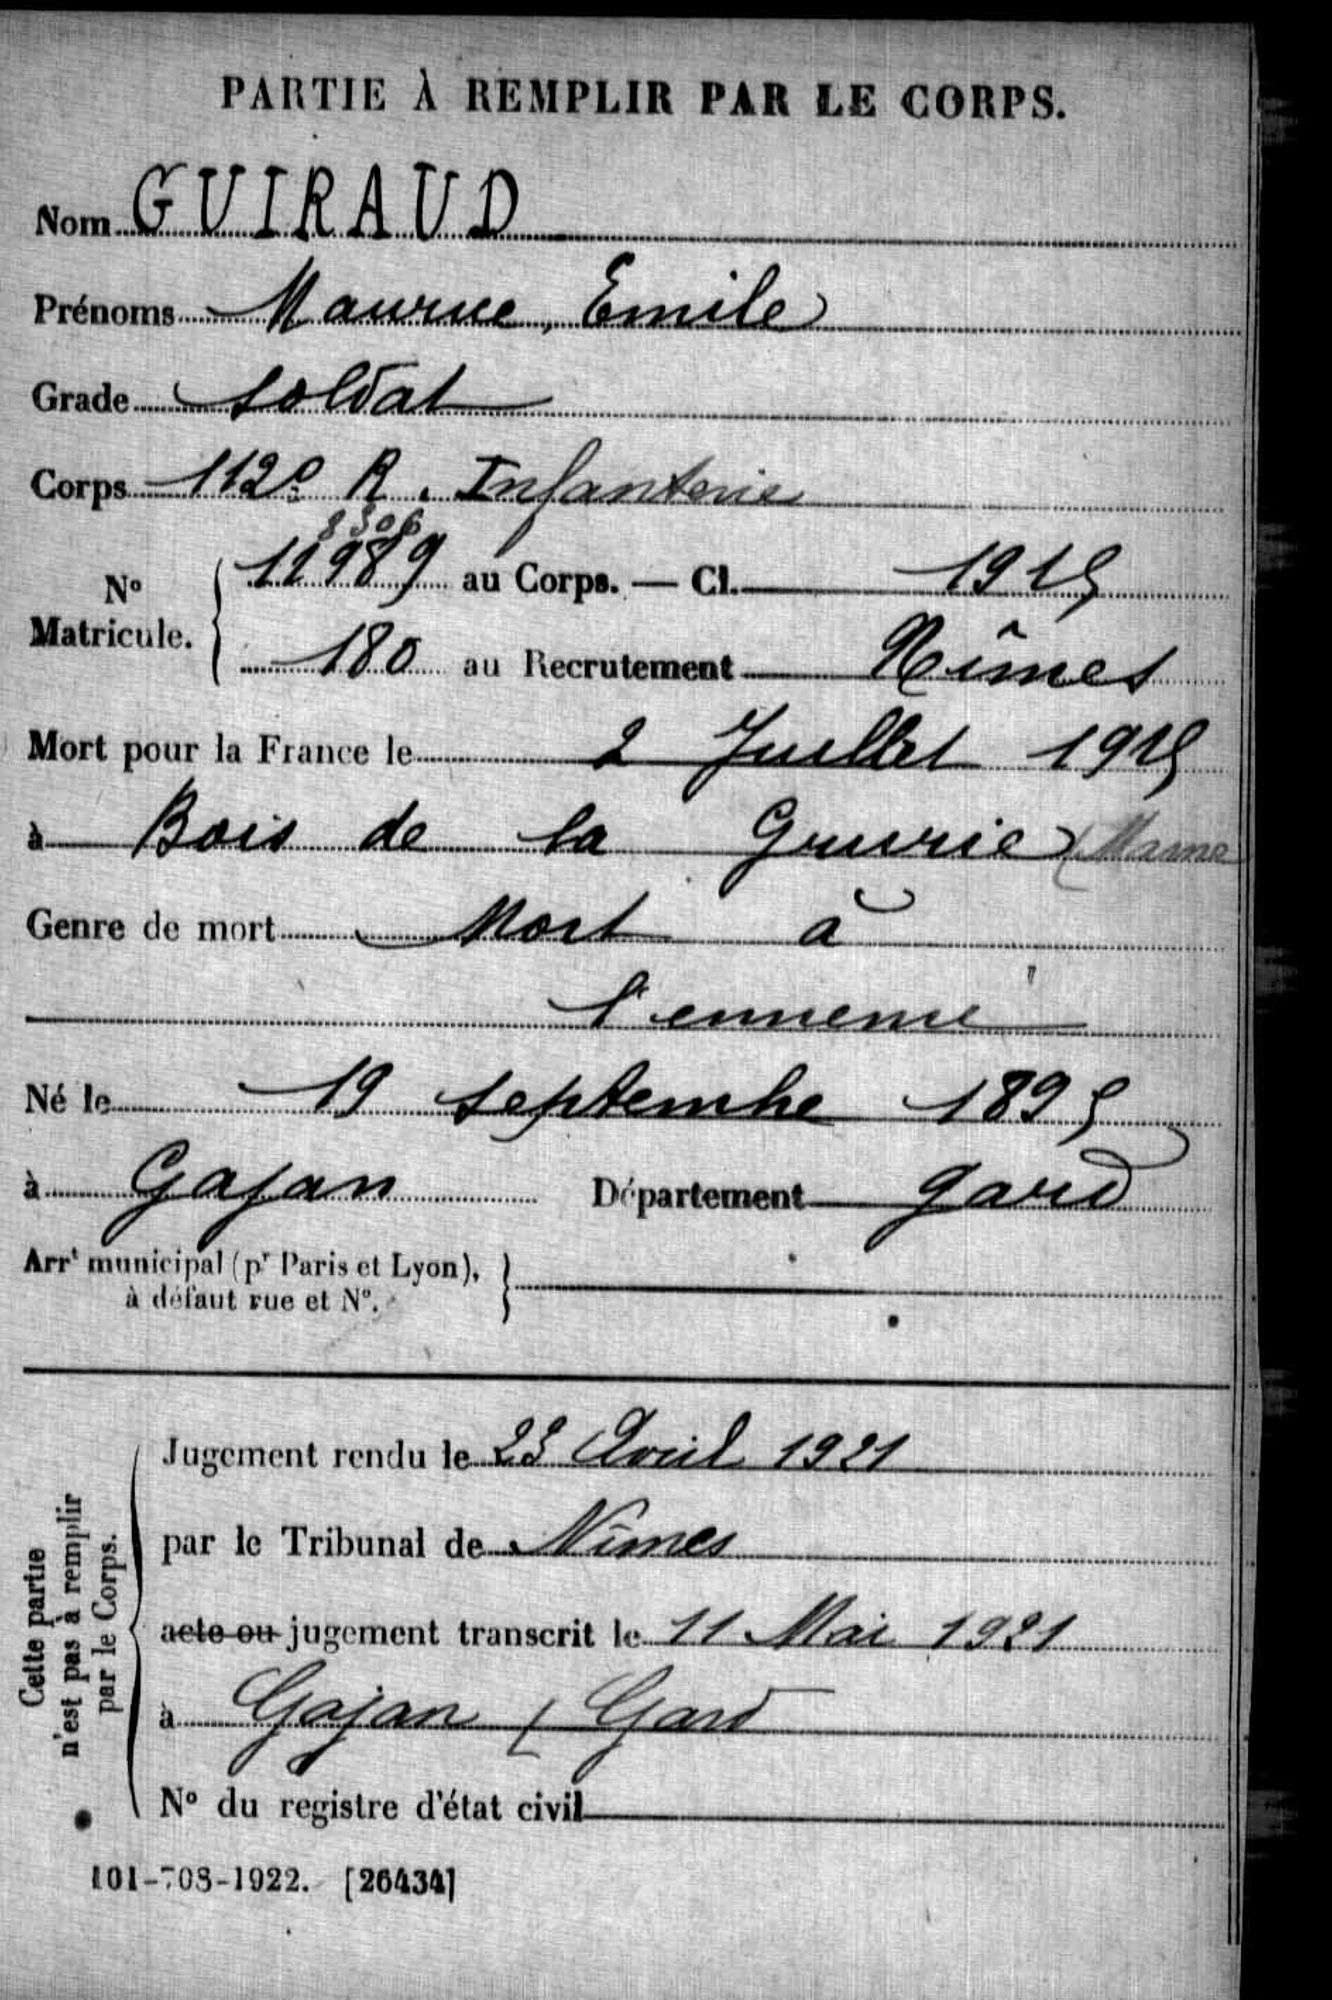 PARTIE À REMPLIR PAR LE CORPS.
Nom GUIRAUD
Prénoms Maurice, Emile
Grade soldat
Corps 112e R. Infanterie
8306
N° Matricule. 11989 au Corps. — Cl. 1915
180 au Recrutement Nîmes
Mort pour la France le 2 Juillet 1915
à Bois de la Grurie (Marne
Genre de mort Mort à
l'ennemi
Né le 19 septembre 1895
à Gajan Département Gard
Arrt municipal (pr Paris et Lyon),
à défaut rue et N°.
Cette partie
n'est pas à remplir
par le Corps.
Jugement rendu le 23 Avril 1921
par le Tribunal de Nîmes
acte ou jugement transcrit le 11 Mai 1921
à Gajan (Gard
N° du registre d'état civil
101-708-1922. [26434]